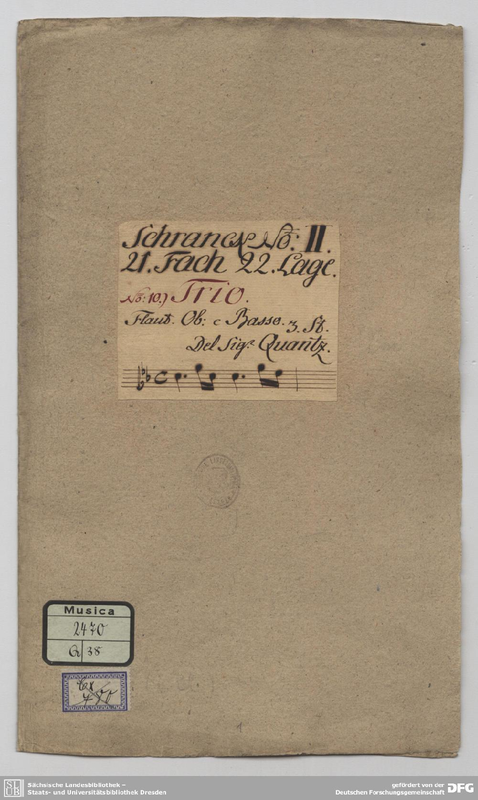 Schranck No: II.
21. Fach 22. Lage.
No: 10.) Trio.
Flaut. Ob: e Basso. 3. St.
Del Sig.r Quantz.
Musica
2470
Q 38
SLUB
Sächsische Landesbibliothek –
Staats- und Universitätsbibliothek Dresden
gefördert von der
Deutschen Forschungsgemeinschaft
DFG